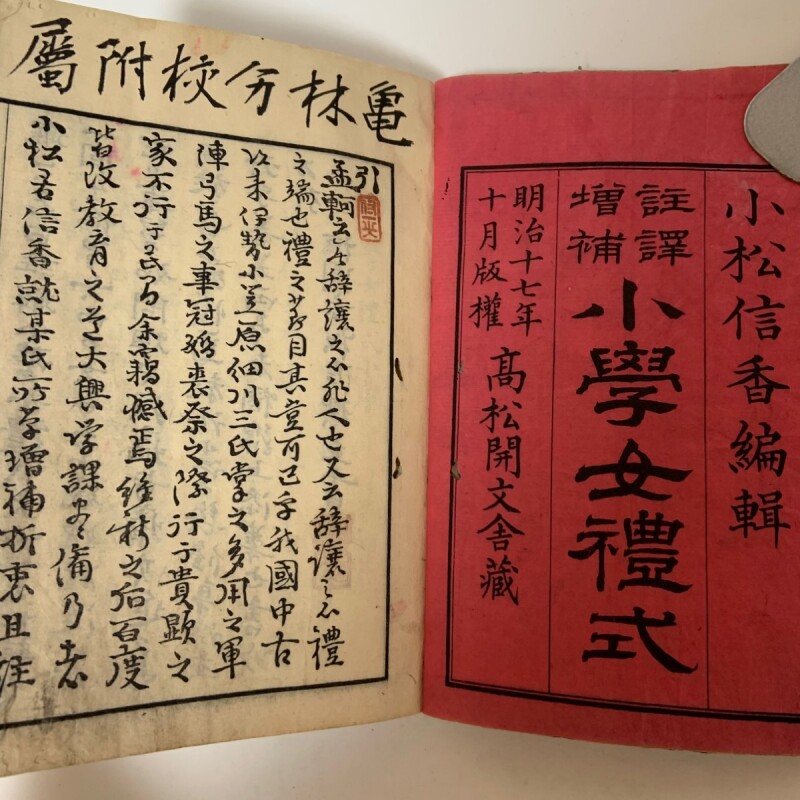 小松信香編輯
註譯
增補
小學女禮式
明治十七年
十月版權
髙松開文舎藏
亀林分校附屬
引
孟軻云无辞讓之心非人也又云辞讓之心禮
之端也禮之節目其豈可已乎我國中古
以来伊勢小笠原細川三氏掌之多用之軍
陣弓馬之事冠婚喪祭之際行于貴顕之
家不行于民間余竊憾焉維新之后百度
皆改教育之道大興学課備乃者
小松君信香就某氏所著增補折衷且註